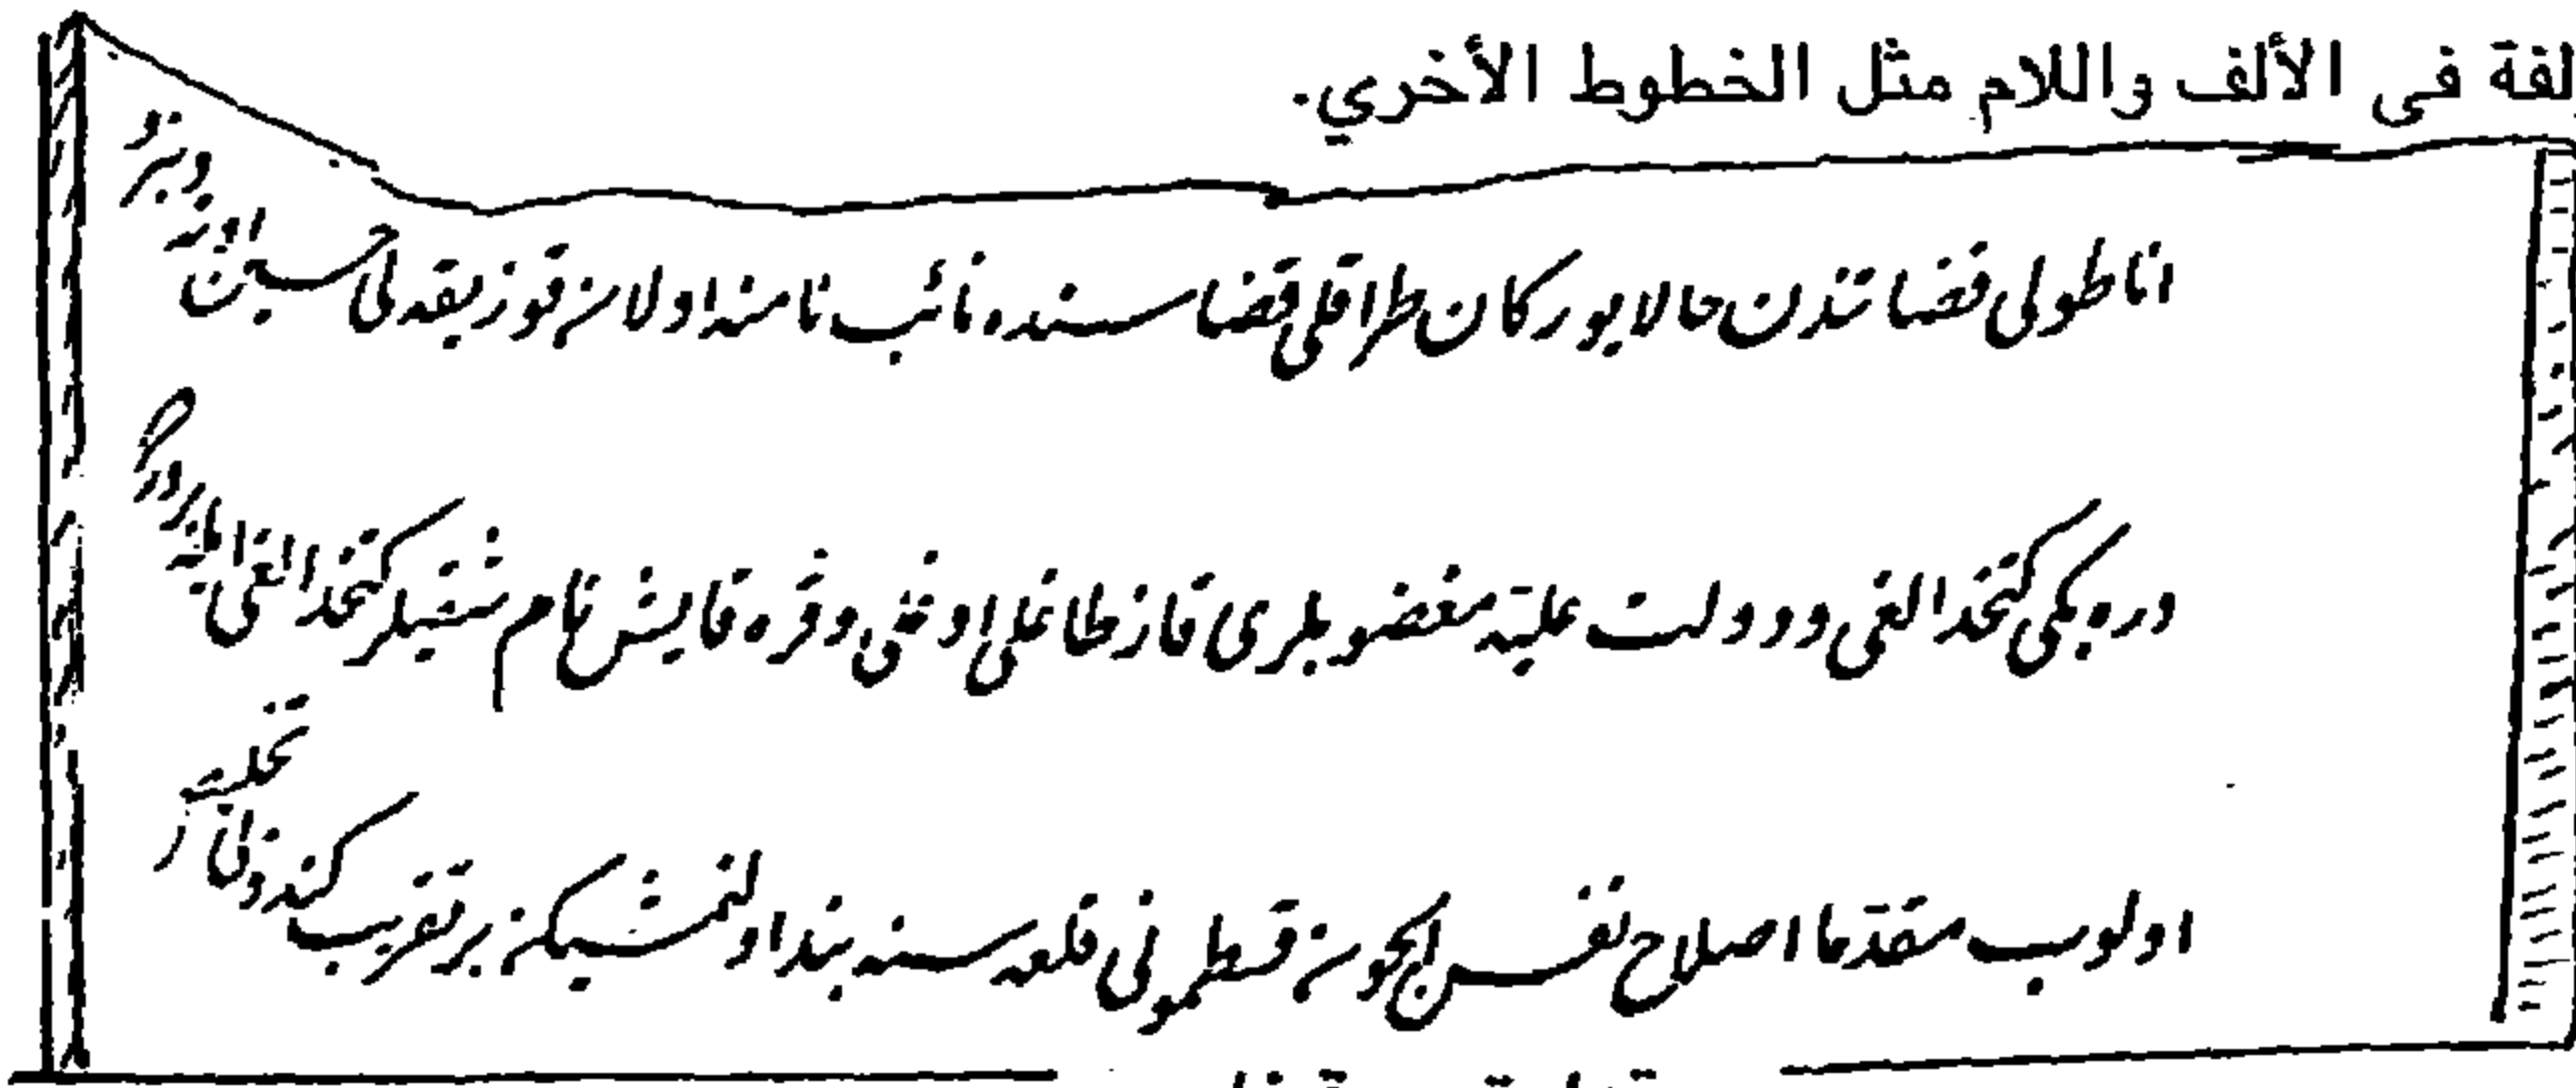 لفة في الألف واللام مثل الخطوط الأخري.
اناطولی قضاتندن حالا یورکان طراقلی قضاسنده نائب نامنه اولان قوزیقه لی حسین اوزون
دره بکی کتخدالغی و دولت علیه مغضوبلری قازطاغلی اوغلی و قره قایش نام شقیلر کتخدالغی
اولوب مقدما اصلاح نفس ایچون قسطمونی قلعه سنه بند اولنمشیکن بر تقریب کندوی تخلیه